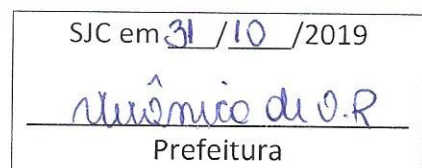 SJC em 31/10/2019
Verônica de O.R
Prefeitura